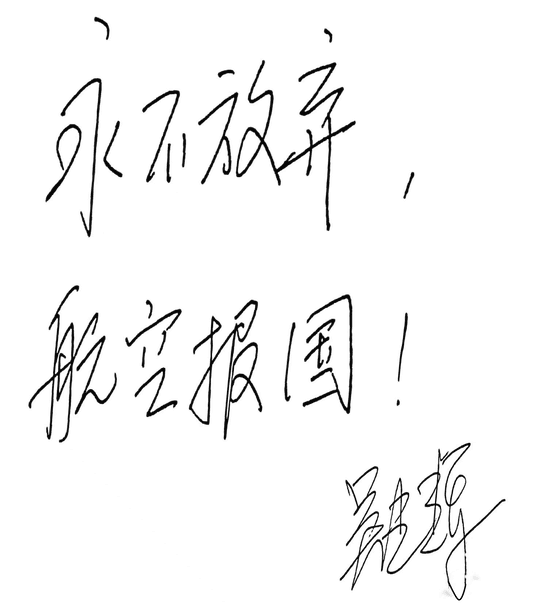 永不放弃，
航空报国！